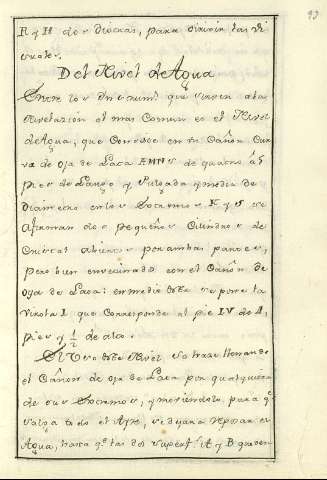 93
R y H dos
para dividir las vi
suales.
Del Nivel de Agua
Entre los que sirven a la
Nivelacion el mas comun es el Nivel
de Agua, que consiste en un Cañon Cur
va de oja de Lata de quatro á 5
pies de Largo y Pulgada y media de
Diametro en los Extremos K y
afirman dos pequeños Cilindros de
Cristal abiertos por ambas partes,
pero bien con el Cañon de
oja de Lata: en medio de se pone la
Virola I que corresponde al pie IV de 4
pies y 1/2 de alto.
El Uso de este Nivel, se hace llenando
el Cañon de oja de Lata por qualquiera
de sus Extremos, y para qe
salga todo el Ayre, se dejara reposar el
Agua, hasta qe las dos superfs. A y B queden